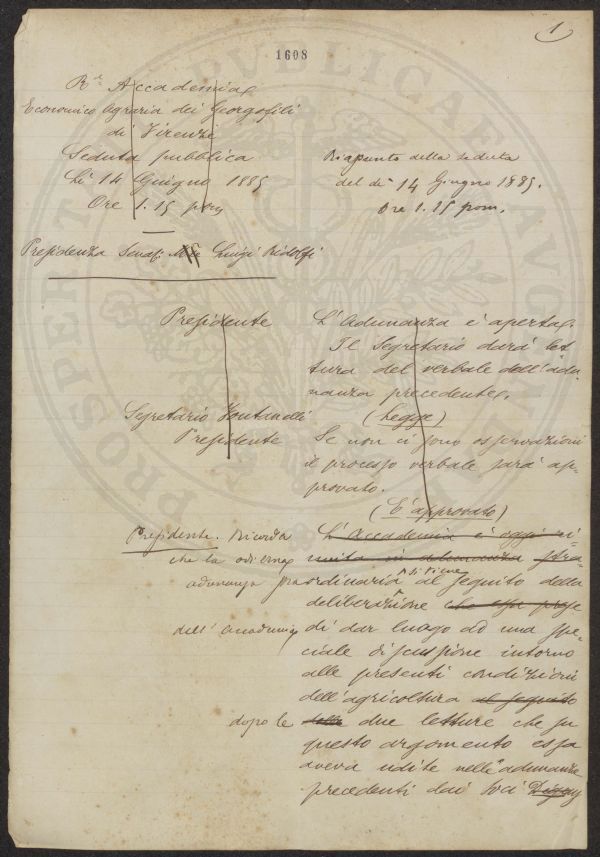 1
1608
PROSPERITATI PVBLICAE AVGENDAE
R.a Accademia
Economico Agraria dei Georgofili
di Firenze
Seduta pubblica
Li 14 Giugno 1885
Ore 1.15 pom
Riapunto della seduta
del dì 14 Giugno 1885.
Ore 1.15 pom.
Presidenza Luigi Ridolfi
Presidente
L'Adunanza è aperta.
Il Segretario darà let
tura del verbale dell'adu
nanza precedente.
Segretario Fontanelli
(Legge)
Presidente
Se non ci sono osservazioni
il processo verbale sarà ap-
provato.
(È approvato)
Presidente. Ricorda
L'Accademia è oggi ri-
che la odierna
unita in adunanza stra
adunanza straordinaria si tiene al seguito della
deliberazione che essa prese
dell'Accademia
di dar luogo ad una spe-
ciale discussione intorno
alle presenti condizioni
dell'agricoltura al seguito
dopo le
delle due letture che su
questo argomento essa
aveva udite nelle adunanze
precedenti dai Soci